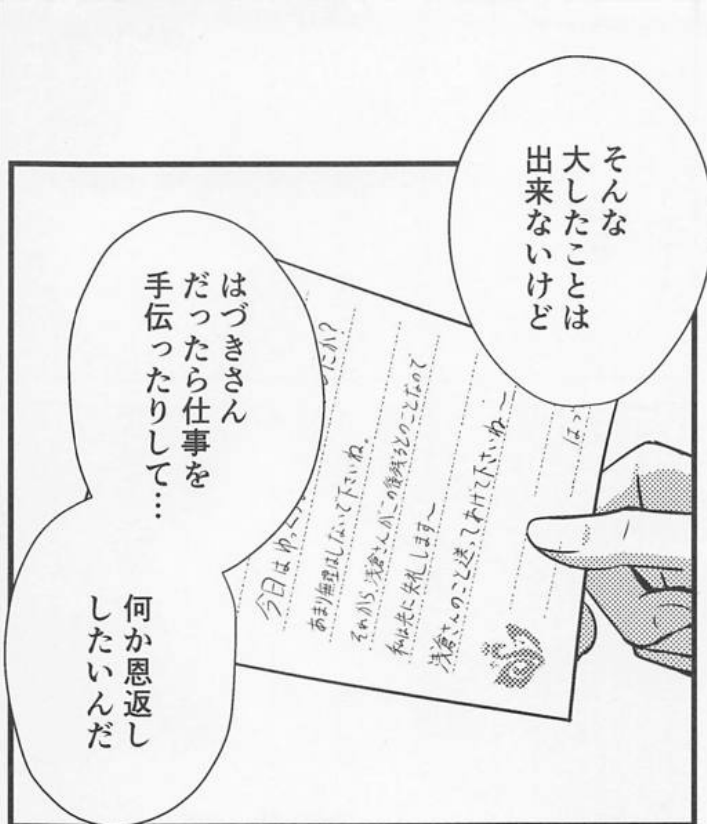 そんな
大したことは
出来ないけど
はづきさん
だったら仕事を
手伝ったりして…
何か恩返し
したいんだ
今日はゆっくり
たか?
あまり無理はしないで下さいね。
それから浅倉さんがこの後残るとのことなので
私は先に失礼します〜
浅倉さんのこと送ってあげて下さいね〜
はっ